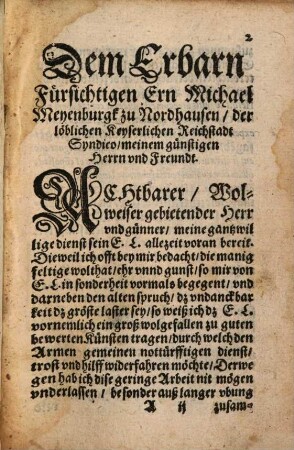 2
Dem Erbarn
Fürsichtigen Ern Michael
Meyenburgk zu Nordhausen / der
löblichen Keyserlichen Reichstadt
Syndico / meinem günstigen
Herrn vnd Freundt.
ACHtbarer / Wol-
weiser gebietender Herr
vnd günner / meine gantz wil
lige dienst sein E. L. allezeit voran bereit.
Die weil ich offt bey mir bedacht / die manig
feltige wolthat / ehr vnnd gunst / so mir von
E. L. in sonderheit vormals begegent / vnd
darneben den alten spruch / dz vndanckbar
keit dz gröste laster sey / so weiß ich dz E. L.
vornemlich ein groß wolgefallen zu guten
bewerten Künsten tragen / durch welch den
Armen gemeinen nottürfftigen dienst /
trost vnd hilff widerfahren möchte / Derwe
gen hab ich dise geringe Arbeit nit mögen
vnderlassen / besonder auß langer vbung
A ij zusam-